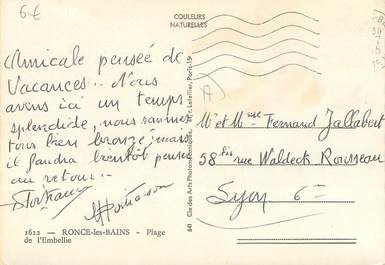 6€
COULEURS
NATURELLES
Amicale pensée de
Vacances... Nous
avons ici un temps
splendide, nous sommes
tous bien bronzé, mais
il faudra bientôt penser
au retour...
1622 — RONCE-les-BAINS - Plage
de l'Embellie
641 Cie des Arts Photomécaniques, Letellier, Paris-15
Mr et Mme Fernand Jallabert
58 bis rue Waldeck Rousseau
Lyon 6e